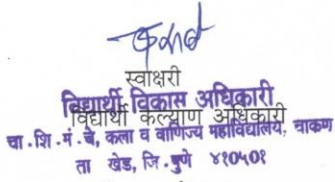 स्वाक्षरी
विद्यार्थी विकास अधिकारी
विद्यार्थी कल्याण अधिकारी
चा . शि . मं . चे, कला व वाणिज्य महाविद्यालय, चाकण
ता खेड, जि . पुणे ४१०५०१